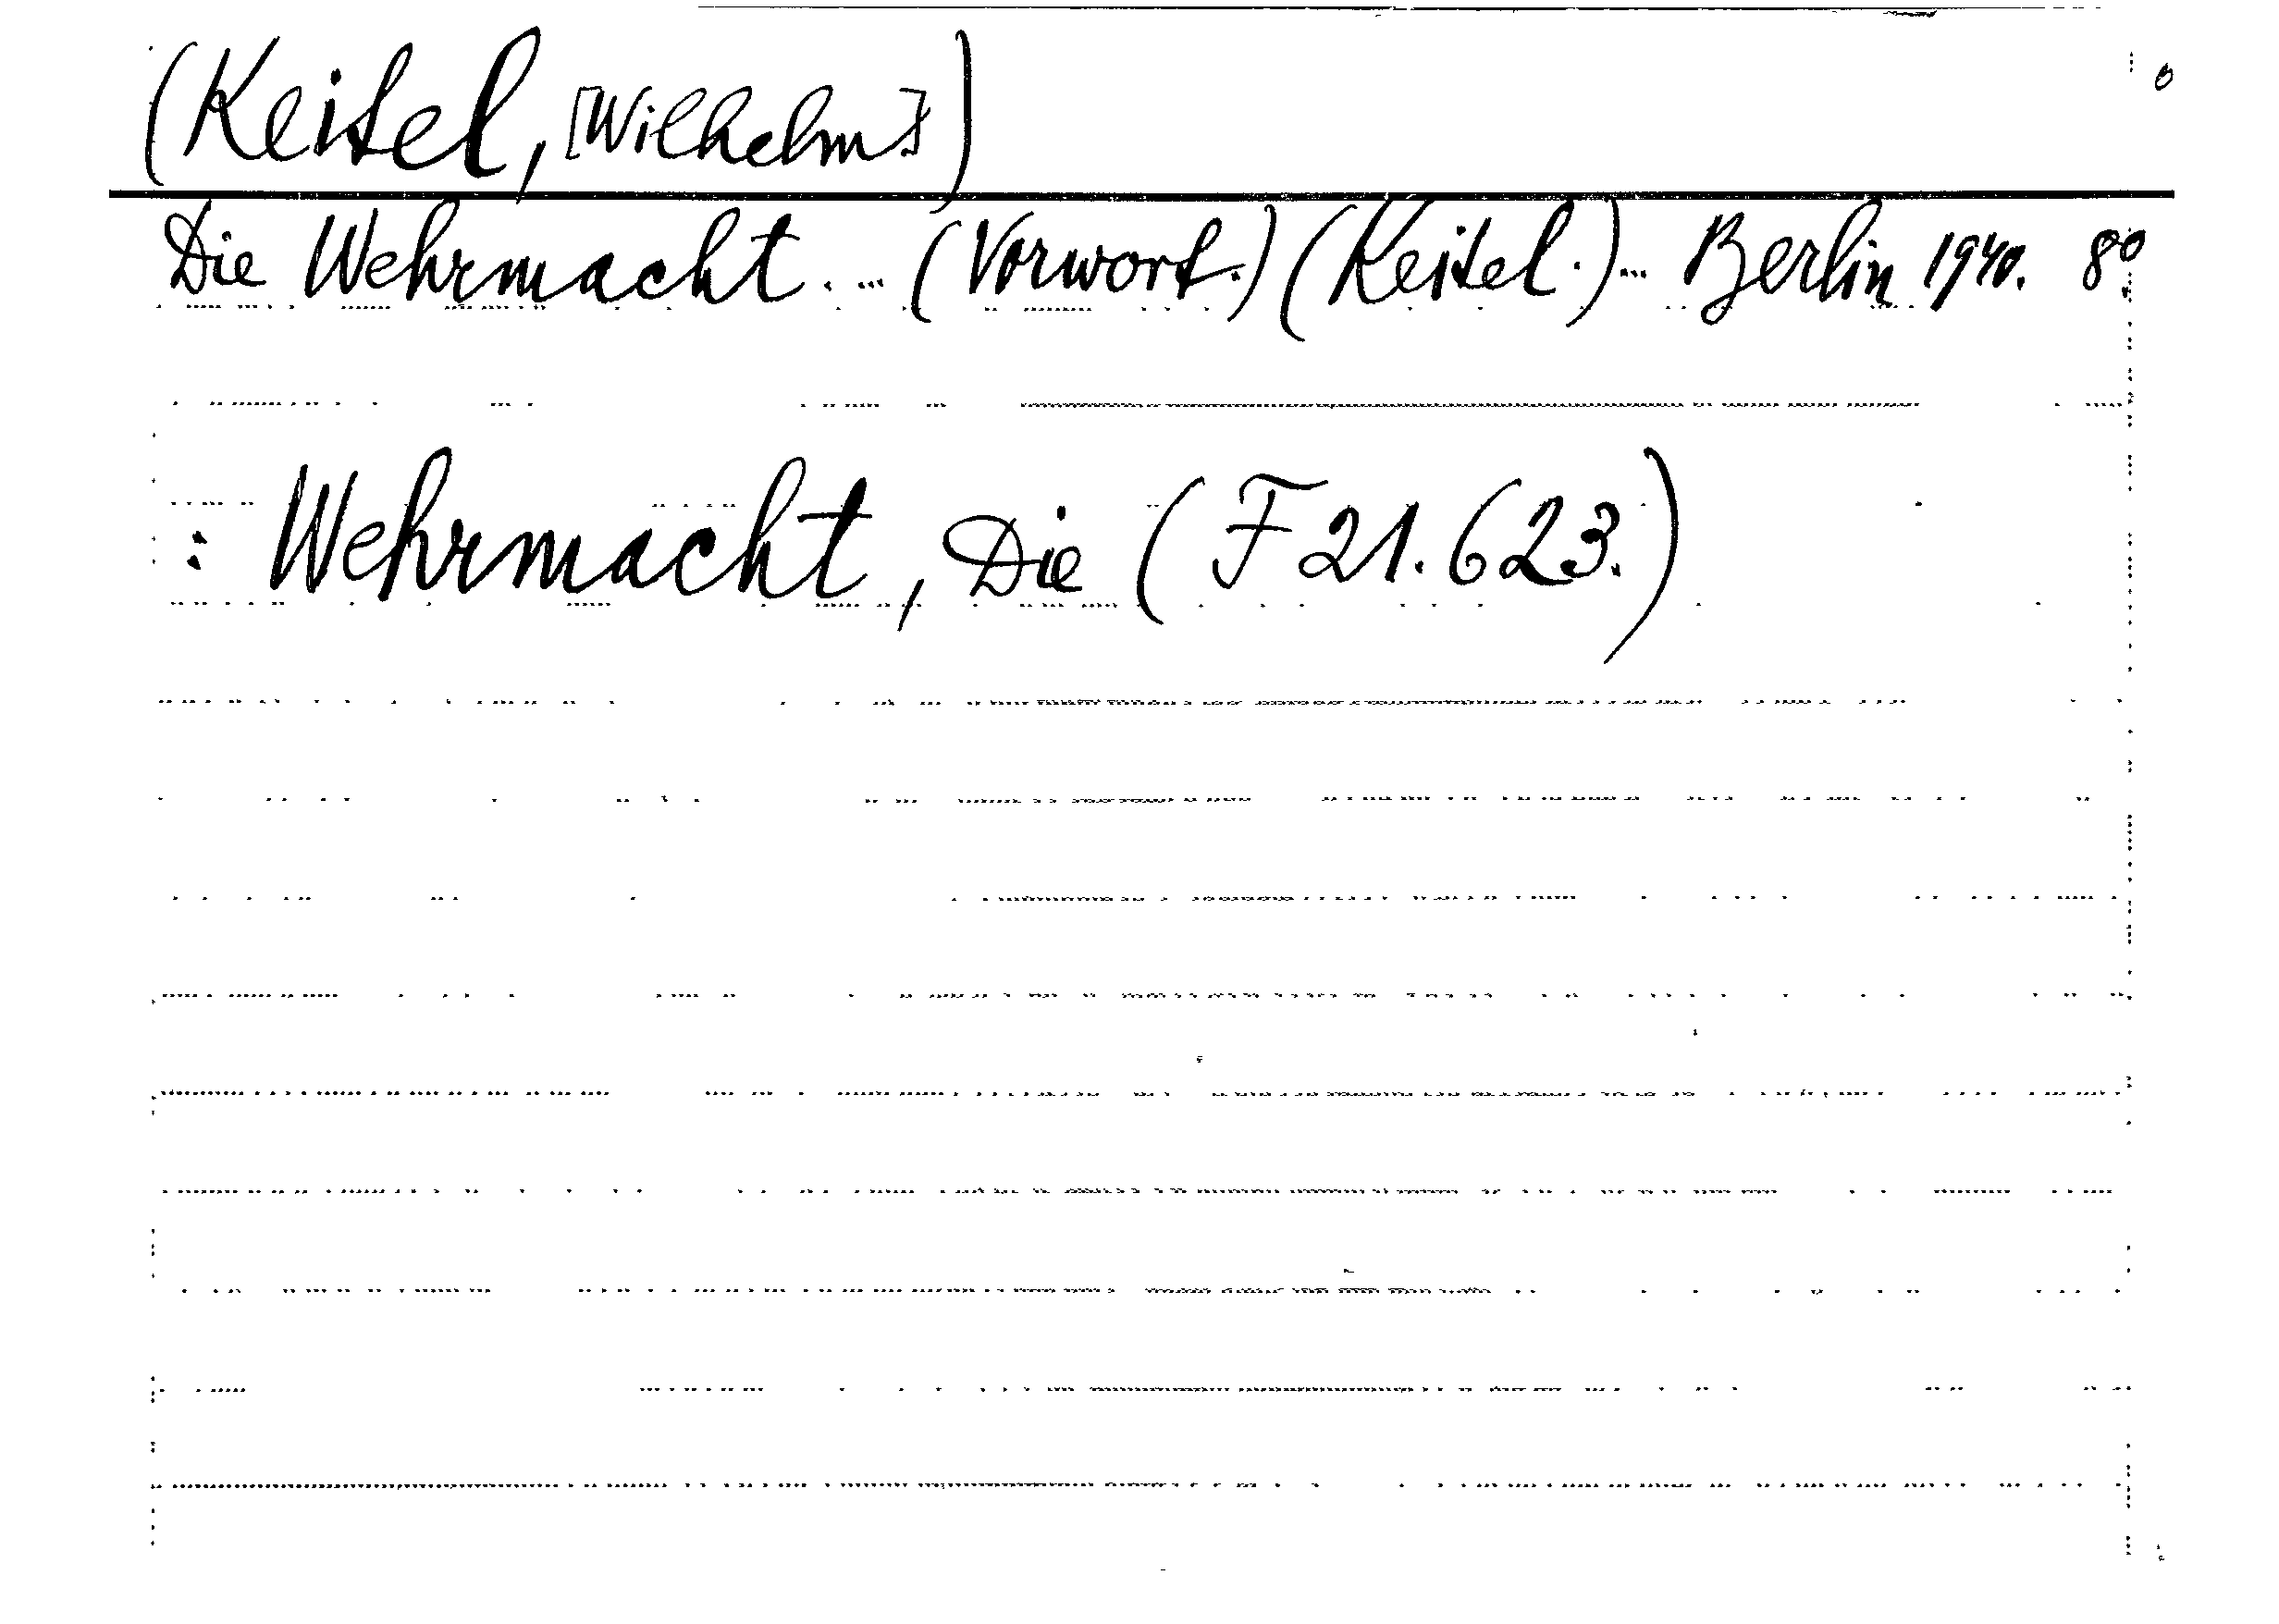 (Keitel, [Wilhelm])
Die Wehrmacht. ... (Vorwort.) (Keitel.) ... Berlin 1940. 8°.
: Wehrmacht, Die (F 21.623.)